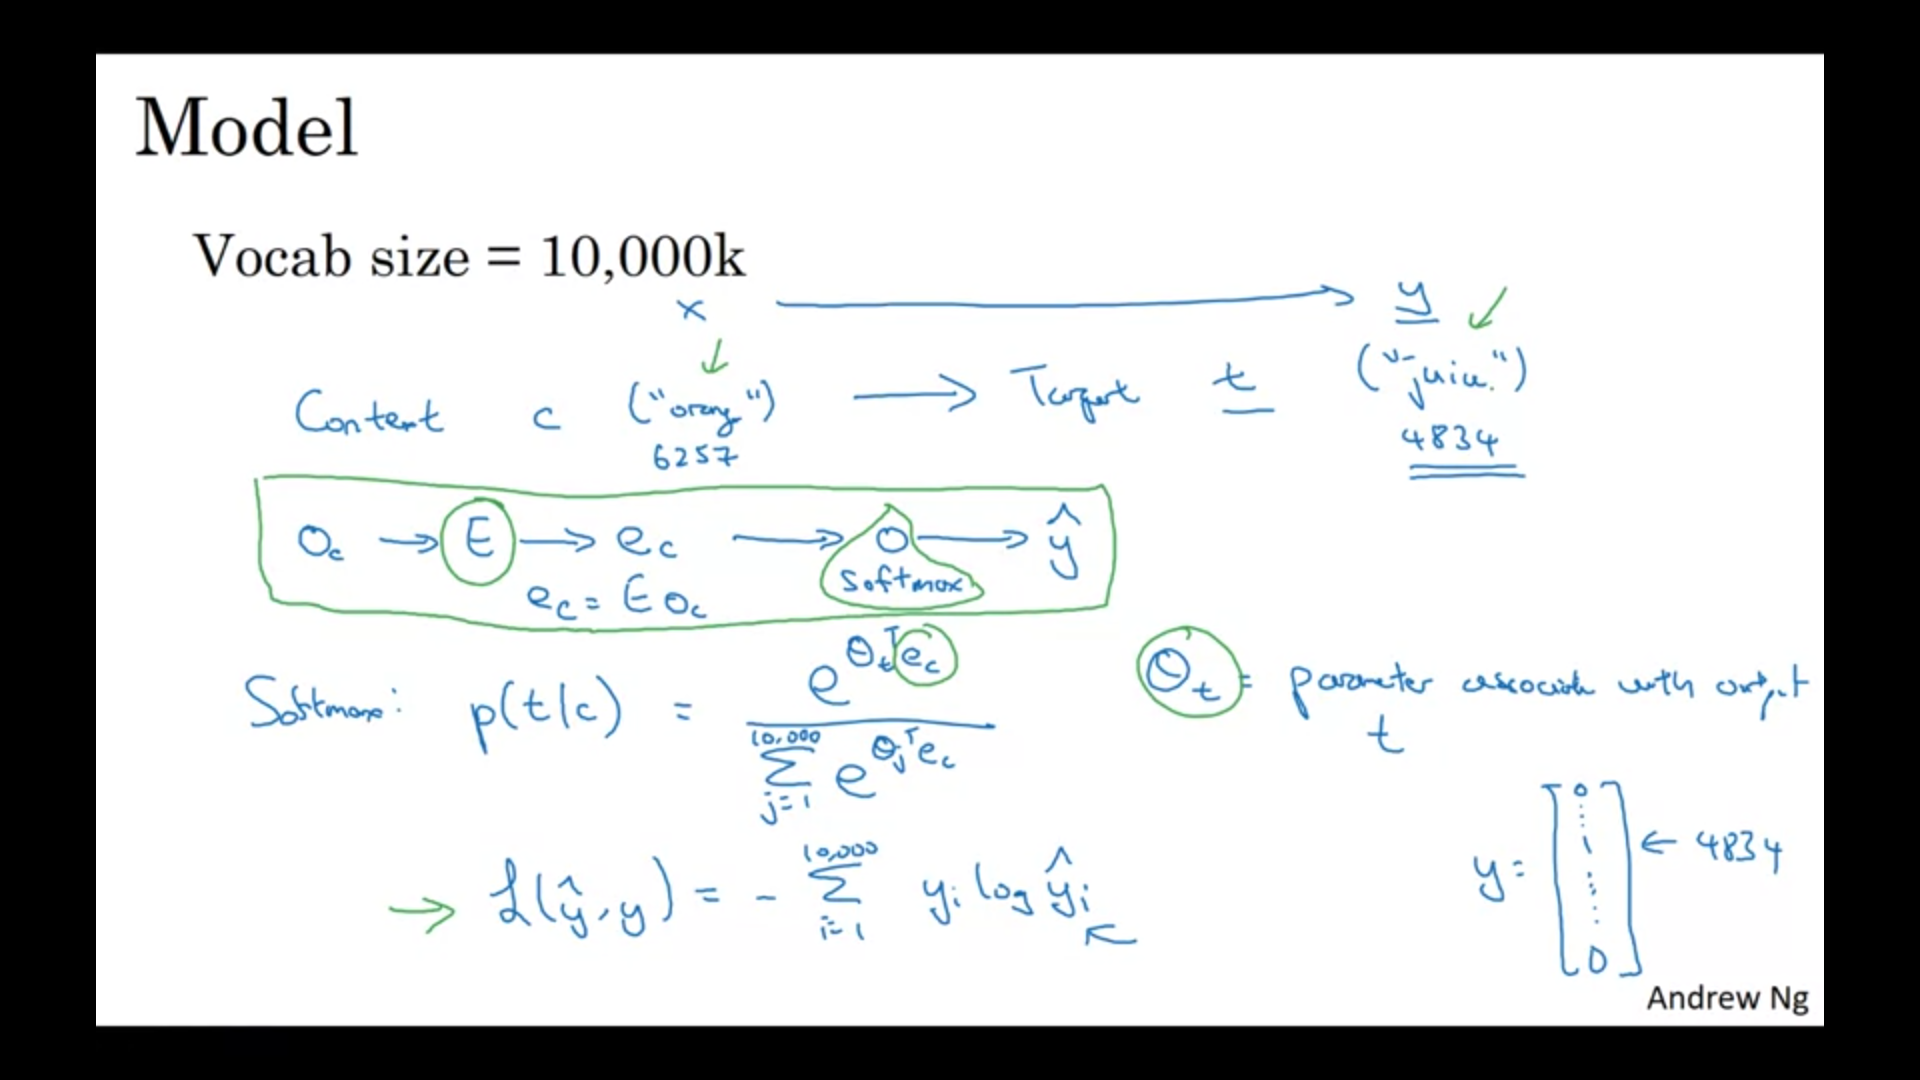 Model
Vocab size = 10,000k
x → y
Context c ("orange") → Target t ("juice")
6257 4834
O_c → E → e_c → O → ŷ
softmax
e_c = E o_c
Softmax: p(t|c) = e^{θ_t^T e_c} / Σ_{j=1}^{10,000} e^{θ_j^T e_c}
θ_t = parameter associated with output t
ℒ(ŷ, y) = - Σ_{i=1}^{10,000} y_i log ŷ_i
y = [0 ⋮ 1 ⋮ 0] ← 4834
Andrew Ng